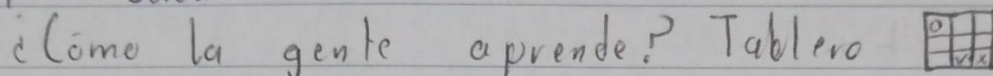 ¿Cómo la gente aprende? Tablero